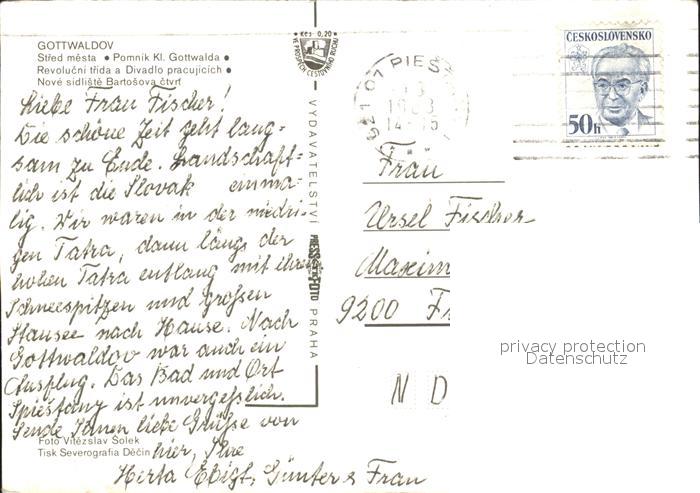 GOTTWALDOV
Střed města • Pomník Kl. Gottwalda •
Revoluční třída a Divadlo pracujících •
Nové sídliště Bartošova čtvrť
Liebe Frau Fischer!
Die schöne Zeit geht lang-
sam zu Ende. Landschaft-
lich ist die Slovak einma-
lig. Wir waren in der niedri-
gen Tatra, dann längs der
hohen Tatra entlang mit ihren
Schneespitzen und großen
Stausee nach Hause. Nach
Gottwaldov war auch ein
Ausflug. Das Bad und Ort
Spieštany ist unvergeßlich.
Sende Ihnen liebe Grüße von
hier, Ihre
Herta Günter & Frau
Foto Vítězslav Šolek
Tisk Severografia Děčín
Kčs 0,20
VE PROSPĚCH CESTOVNÍHO RUCHU
VYDAVATELSTVÍ PRESSFOTO PRAHA
921 01 PIEŠ
14-15
ČESKOSLOVENSKO
50h
Frau
Ursel Fischer
Maxim
9200 Fr
N D
privacy protection
Datenschutz